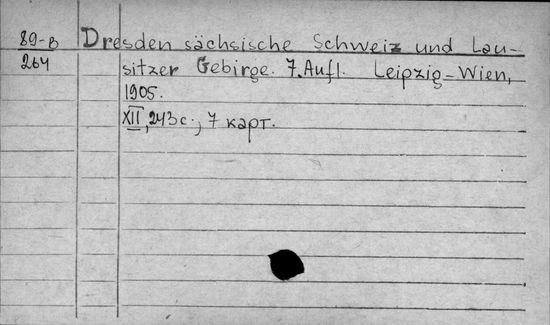 89-В Dresden sächsische Schweiz und Lau-
264 sitzer Gebirge. 7. Aufl. Leipzig-Wien,
1905.
XII, 243 с., 7 карт.